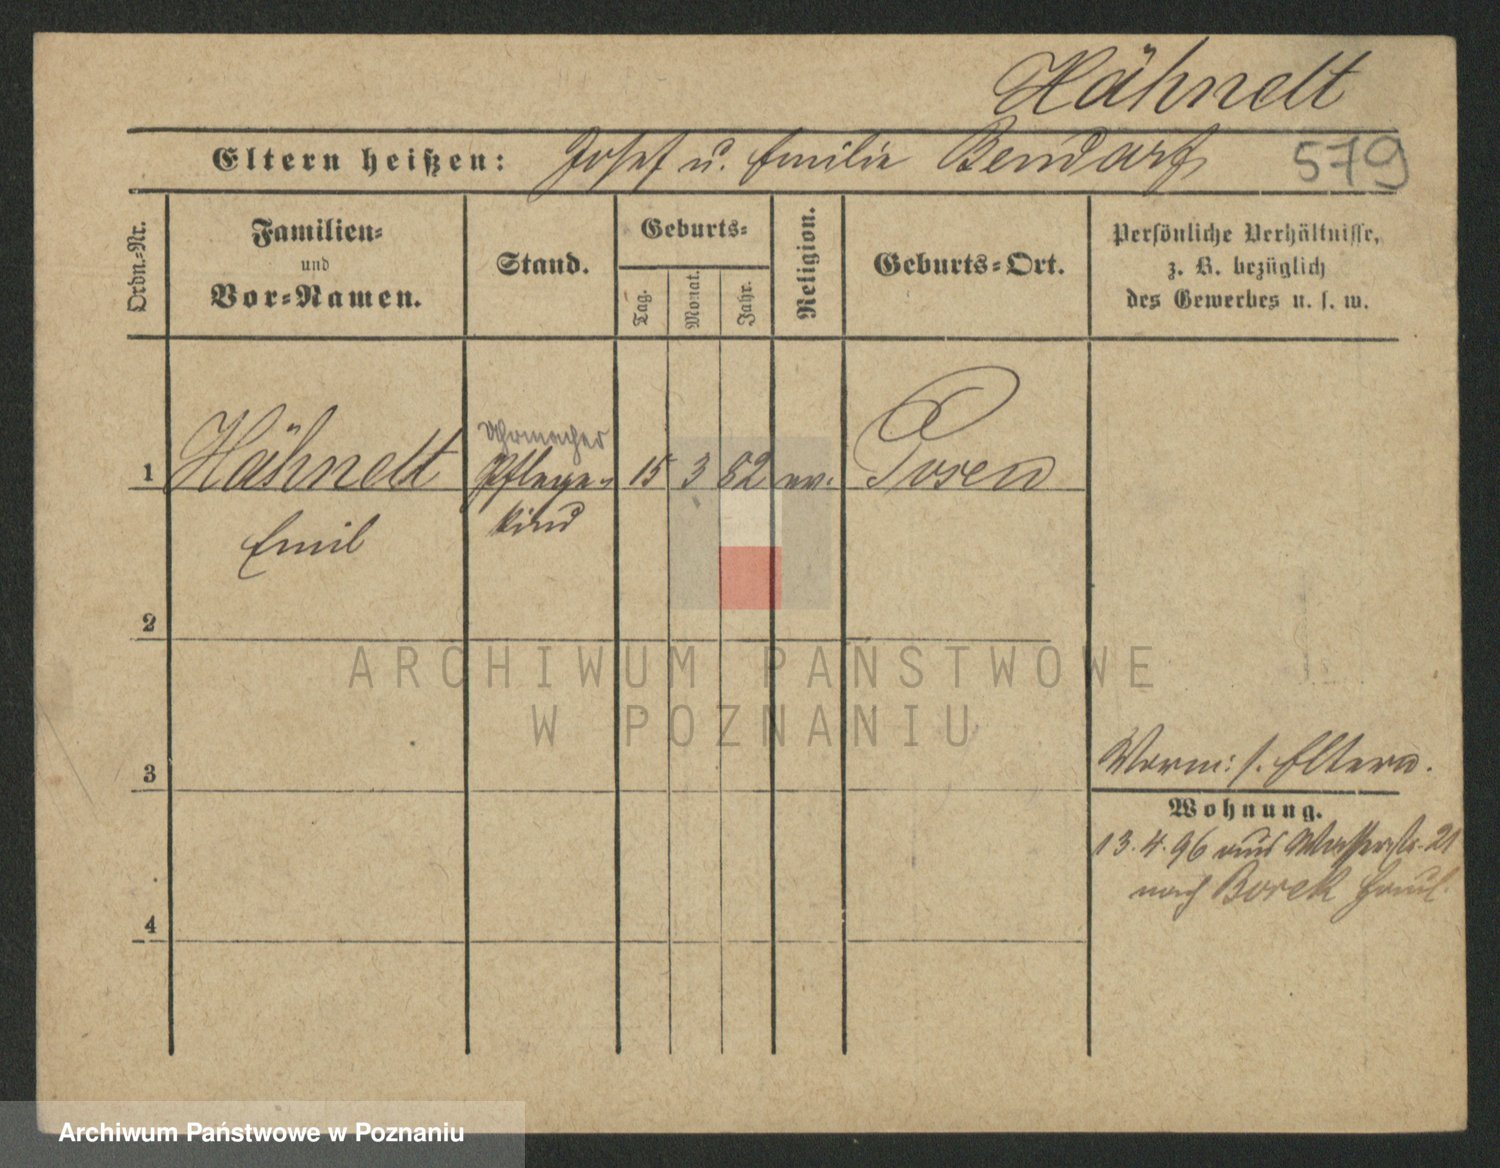 Hähnelt
Eltern heißen: Josef u. Emilie Bendarf
579
Ordn.-Nr.
Familien-
und
Vor-Namen.
Stand.
Geburts-
Tag.
Monat.
Jahr.
Religion.
Geburts-Ort.
Persönliche Verhältnisse,
z. B. bezüglich
des Gewerbes u. s. w.
Uhrmacher
1 Hähnelt Pflege- 15 3 82 ev. Posen
Emil kind
2
ARCHIWUM PAŃSTWOWE
W POZNANIU
3
Vorm: s. Eltern.
Wohnung.
13.4.96 aus Wasserstr. 21
nach Borek
4
Archiwum Państwowe w Poznaniu